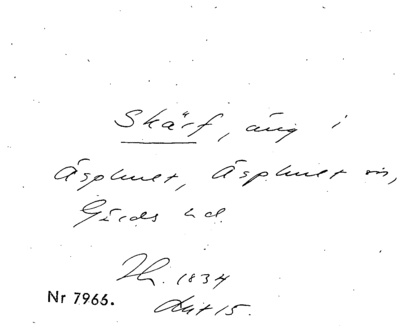 Skärf, äng i
Äsphult, Äsphult sn,
Gärds hd.
1834
Nr 7966. Akt 15.